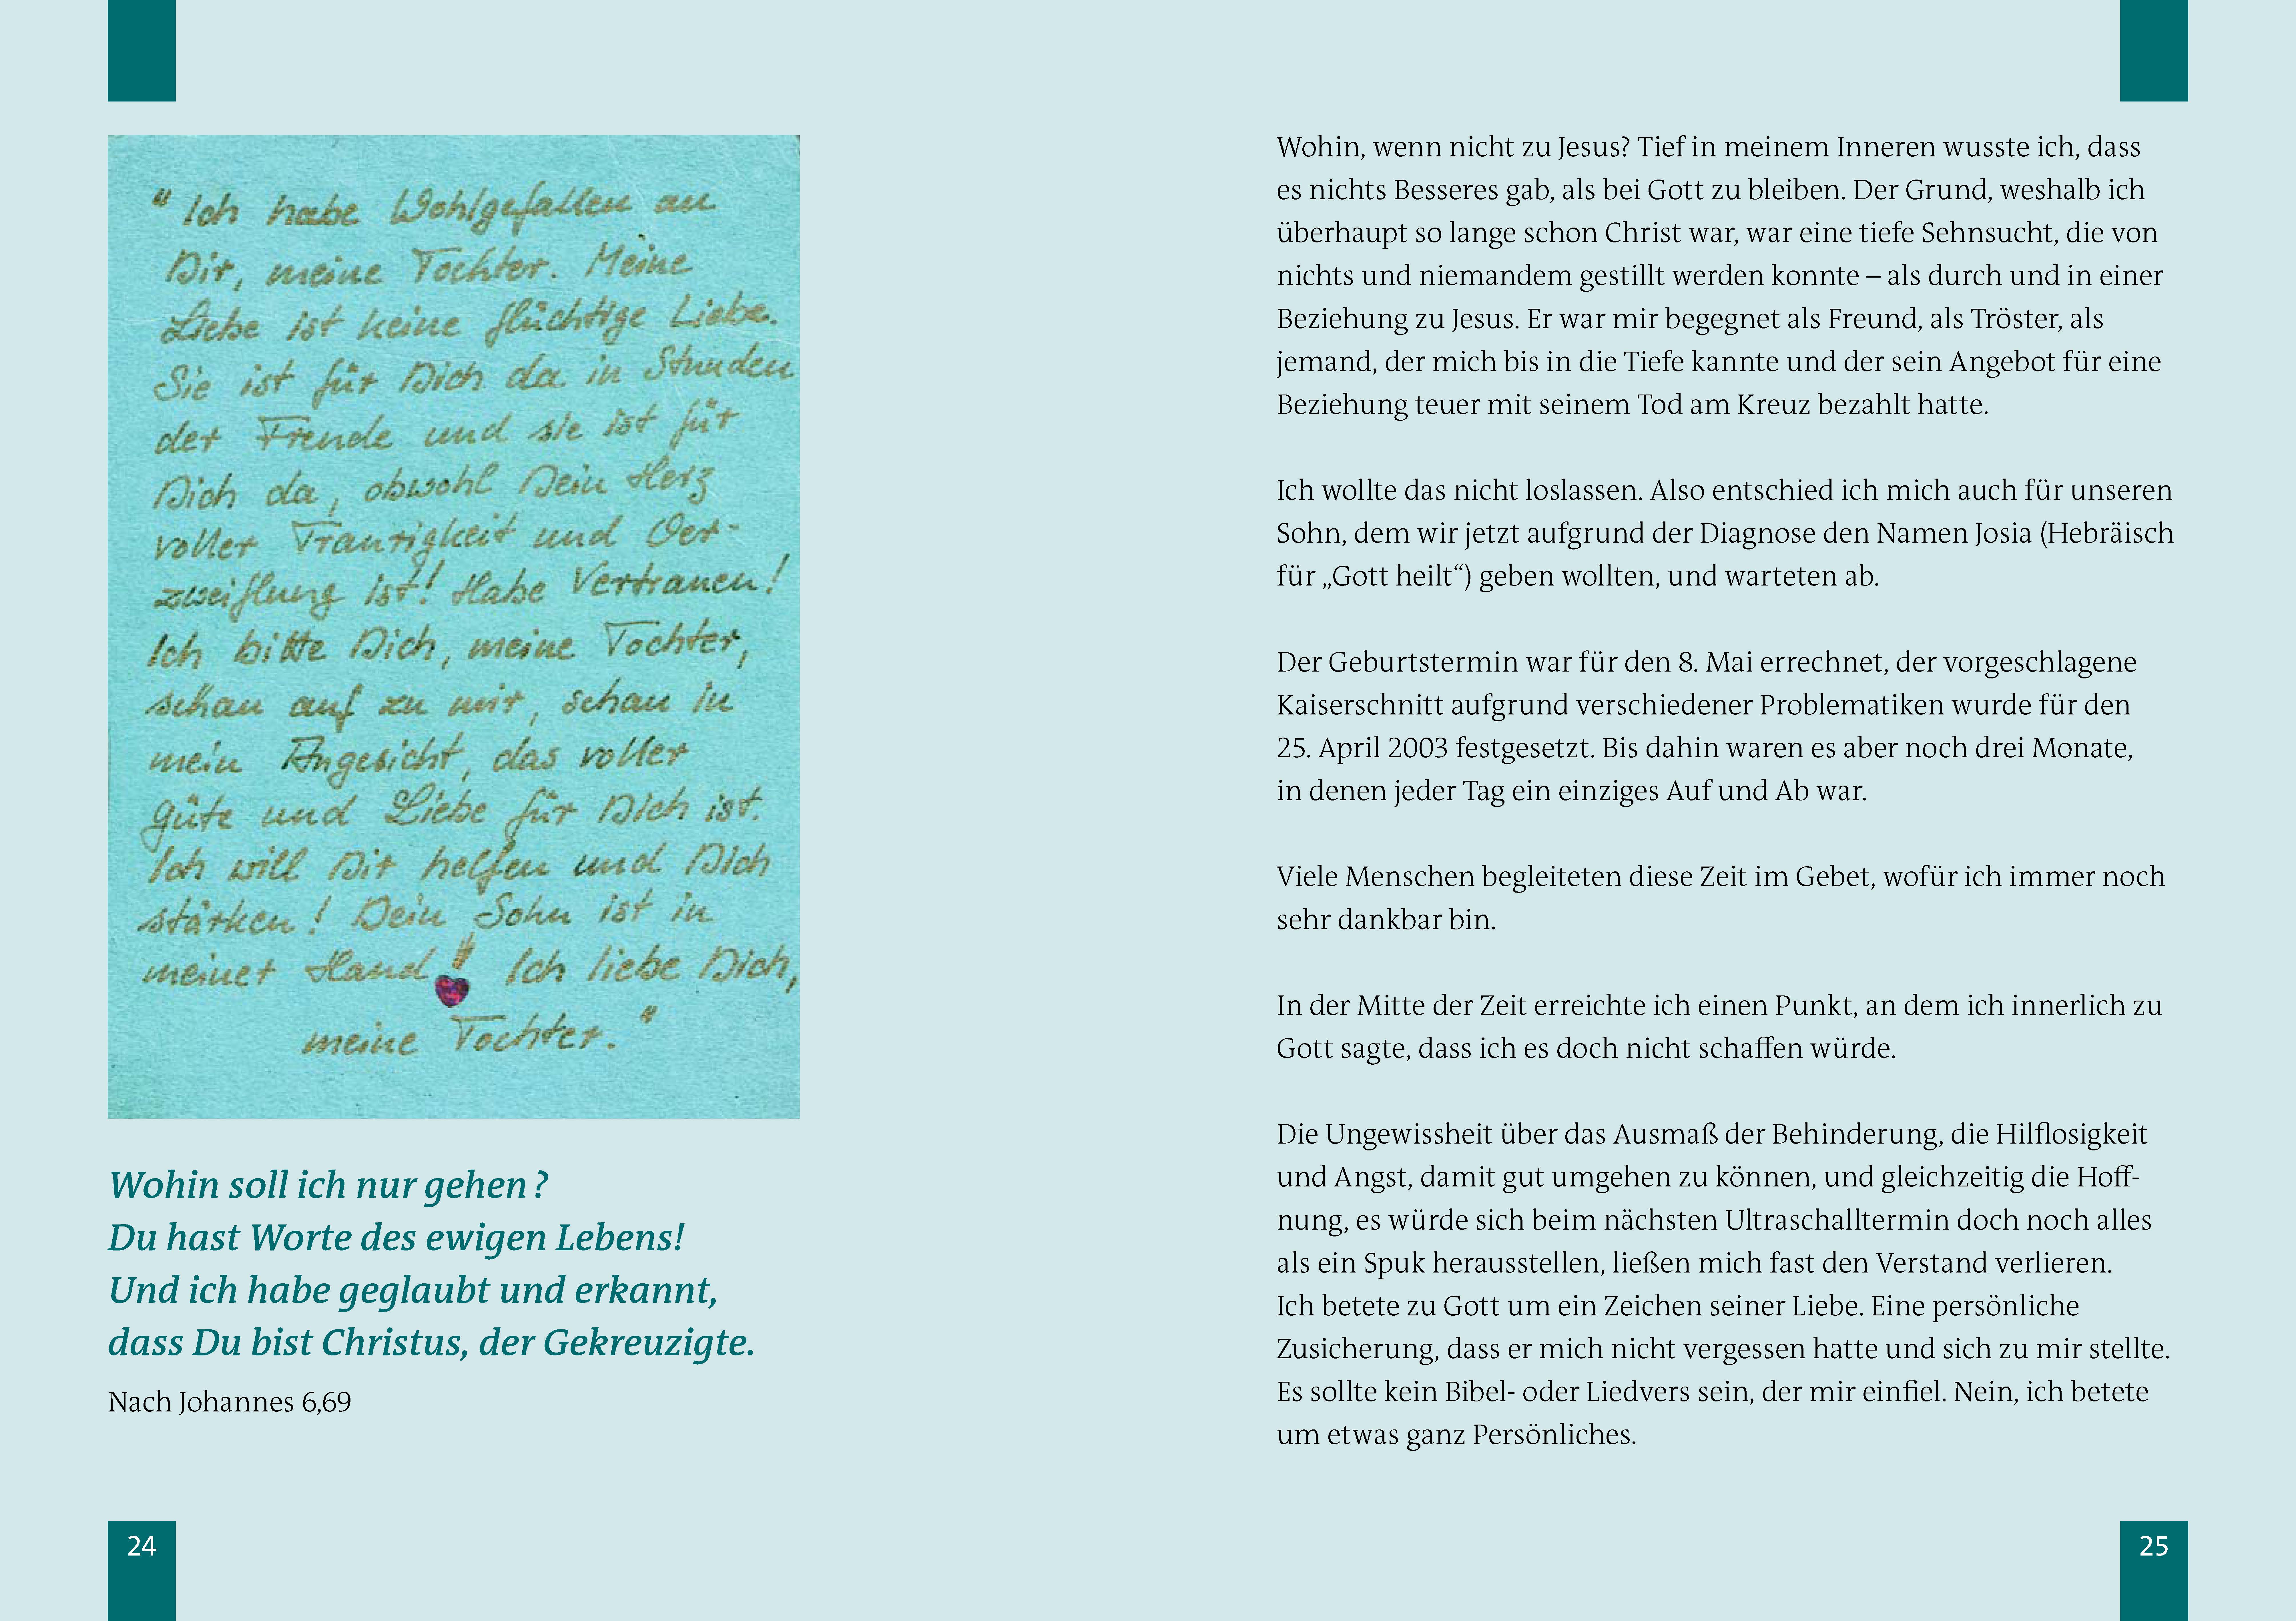 " Ich habe Wohlgefallen an
Dir, meine Tochter. Meine
Liebe ist keine flüchtige Liebe.
Sie ist für Dich da in Stunden
der Freude und sie ist für
Dich da, obwohl Dein Herz
voller Traurigkeit und Ver-
zweiflung ist! Habe Vertrauen!
Ich bitte Dich, meine Tochter,
schau auf zu mir, schau in
mein Angesicht, das voller
Güte und Liebe für Dich ist.
Ich will Dir helfen und Dich
stärken! Dein Sohn ist in
meiner Hand! Ich liebe Dich,
meine Tochter."
Wohin soll ich nur gehen?
Du hast Worte des ewigen Lebens!
Und ich habe geglaubt und erkannt,
dass Du bist Christus, der Gekreuzigte.
Nach Johannes 6,69
24
Wohin, wenn nicht zu Jesus? Tief in meinem Inneren wusste ich, dass
es nichts Besseres gab, als bei Gott zu bleiben. Der Grund, weshalb ich
überhaupt so lange schon Christ war, war eine tiefe Sehnsucht, die von
nichts und niemandem gestillt werden konnte – als durch und in einer
Beziehung zu Jesus. Er war mir begegnet als Freund, als Tröster, als
jemand, der mich bis in die Tiefe kannte und der sein Angebot für eine
Beziehung teuer mit seinem Tod am Kreuz bezahlt hatte.
Ich wollte das nicht loslassen. Also entschied ich mich auch für unseren
Sohn, dem wir jetzt aufgrund der Diagnose den Namen Josia (Hebräisch
für „Gott heilt“) geben wollten, und warteten ab.
Der Geburtstermin war für den 8. Mai errechnet, der vorgeschlagene
Kaiserschnitt aufgrund verschiedener Problematiken wurde für den
25. April 2003 festgesetzt. Bis dahin waren es aber noch drei Monate,
in denen jeder Tag ein einziges Auf und Ab war.
Viele Menschen begleiteten diese Zeit im Gebet, wofür ich immer noch
sehr dankbar bin.
In der Mitte der Zeit erreichte ich einen Punkt, an dem ich innerlich zu
Gott sagte, dass ich es doch nicht schaffen würde.
Die Ungewissheit über das Ausmaß der Behinderung, die Hilflosigkeit
und Angst, damit gut umgehen zu können, und gleichzeitig die Hoff-
nung, es würde sich beim nächsten Ultraschalltermin doch noch alles
als ein Spuk herausstellen, ließen mich fast den Verstand verlieren.
Ich betete zu Gott um ein Zeichen seiner Liebe. Eine persönliche
Zusicherung, dass er mich nicht vergessen hatte und sich zu mir stellte.
Es sollte kein Bibel- oder Liedvers sein, der mir einfiel. Nein, ich betete
um etwas ganz Persönliches.
25